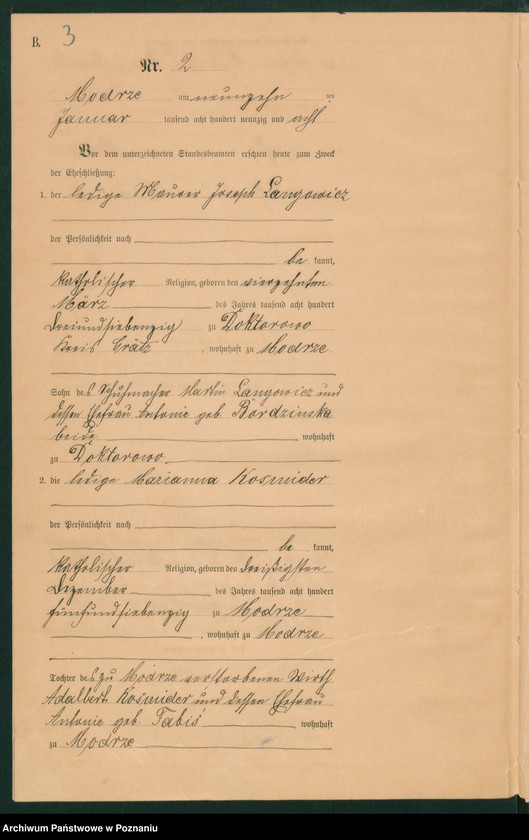 B. 3
Nr. 2
Modrze am neunzehn ten
Januar tausend acht hundert neunzig und acht
Vor dem unterzeichneten Standesbeamten erschien heute zum Zweck
der Eheschließung:
1. der ledige Maurer Joseph Langowicz
der Persönlichkeit nach
be kannt,
katholischer Religion, geboren den vierzehnten
März des Jahres tausend acht hundert
dreiundsiebenzig zu Doktorowo
Kreis Grätz, wohnhaft zu Modrze
Sohn des Schuhmacher Martin Langowicz und
dessen Ehefrau Antonie geb Bordzinska
beide wohnhaft
zu Doktorowo
2. die ledige Marianna Kosmider
der Persönlichkeit nach
be kannt,
katholischer Religion, geboren den dreißigsten
Dezember des Jahres tausend acht hundert
fünfundsiebenzig zu Modrze
, wohnhaft zu Modrze
Tochter des zu Modrze verstorbenen Wirth
Adalbert Kosmider und dessen Ehefrau
Antonie geb Tabiś wohnhaft
zu Modrze
Archiwum Państwowe w Poznaniu